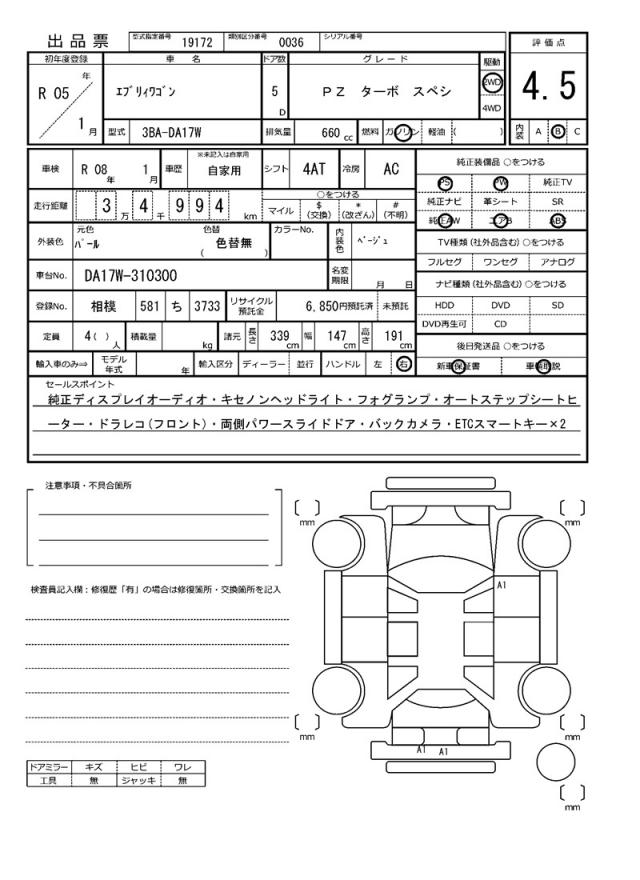 出品票 型式指定番号 19172 類別区分番号 0036 シリアル番号
評価点
4.5
内装 A B C
初年度登録 車名 ドア数 グレード 駆動
R 05 年 1 月
エブリィワゴン 5 D PZ ターボ スペシ 2WD 4WD
型式 3BA-DA17W 排気量 660 cc 燃料 ガソリン 軽油 ( )
車検 R 08 年 1 月 車歴 ※未記入は自家用 自家用 シフト 4AT 冷房 AC
走行距離 3 万 4 千 9 9 4 km
○をつける
マイル $ (交換) * (改ざん) # (不明)
外装色 元色 パール 色替 色替無 ( ) カラーNo. 内装色 ベージュ
車台No. DA17W-310300 名変期限 月 日
登録No. 相模 581 ち 3733 リサイクル預託金 6,850円預託済 未預託
定員 4( ) 人 積載量 kg 諸元 長さ 339 cm 幅 147 cm 高さ 191 cm
輸入車のみ⇒ モデル年式 年 輸入区分 ディーラー 並行 ハンドル 左 右
純正装備品 ○をつける
PS PW 純正TV
純正ナビ 革シート SR
純正AW エアB ABS
TV種類 (社外品含む) ○をつける
フルセグ ワンセグ アナログ
ナビ種類 (社外品含む) ○をつける
HDD DVD SD
DVD再生可 CD
後日発送品 ○をつける
新車保証書 車輌取説
セールスポイント
純正ディスプレイオーディオ・キセノンヘッドライト・フォグランプ・オートステップシートヒ
ーター・ドラレコ(フロント)・両側パワースライドドア・バックカメラ・ETCスマートキー×2
注意事項・不具合箇所
検査員記入欄：修復歴「有」の場合は修復箇所・交換箇所を記入
mm
mm
A1
mm
mm
A1 A1
mm
ドアミラー キズ ヒビ ワレ
工具 無 ジャッキ 無